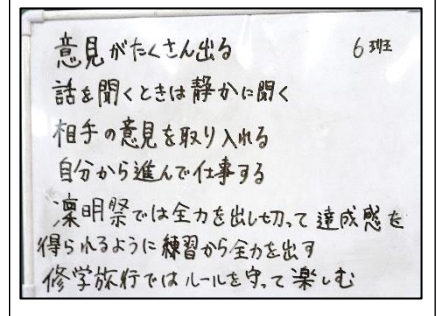 意見がたくさん出る 6班
話を聞くときは静かに聞く
相手の意見を取り入れる
自分から進んで仕事する
凜明祭では全力を出し切って達成感を
得られるように練習から全力を出す
修学旅行ではルールを守って楽しむ